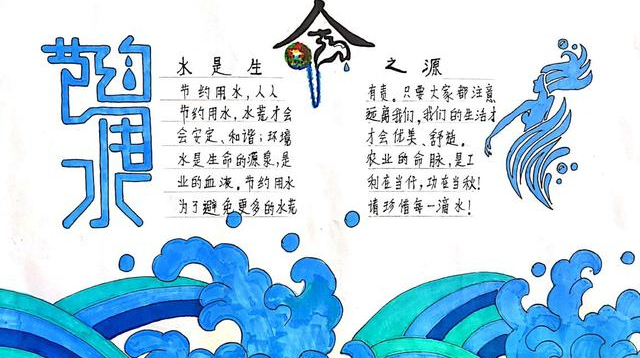 节约用水
水是生命之源
节约用水,人人有责。只要大家都注意
节约用水,水荒才会远离我们,我们的生活才
会安定、和谐;环境才会优美、舒适。
水是生命的源泉,是农业的命脉,是工
业的血液。节约用水利在当代,功在当秋!
为了避免更多的水荒请珍惜每一滴水!